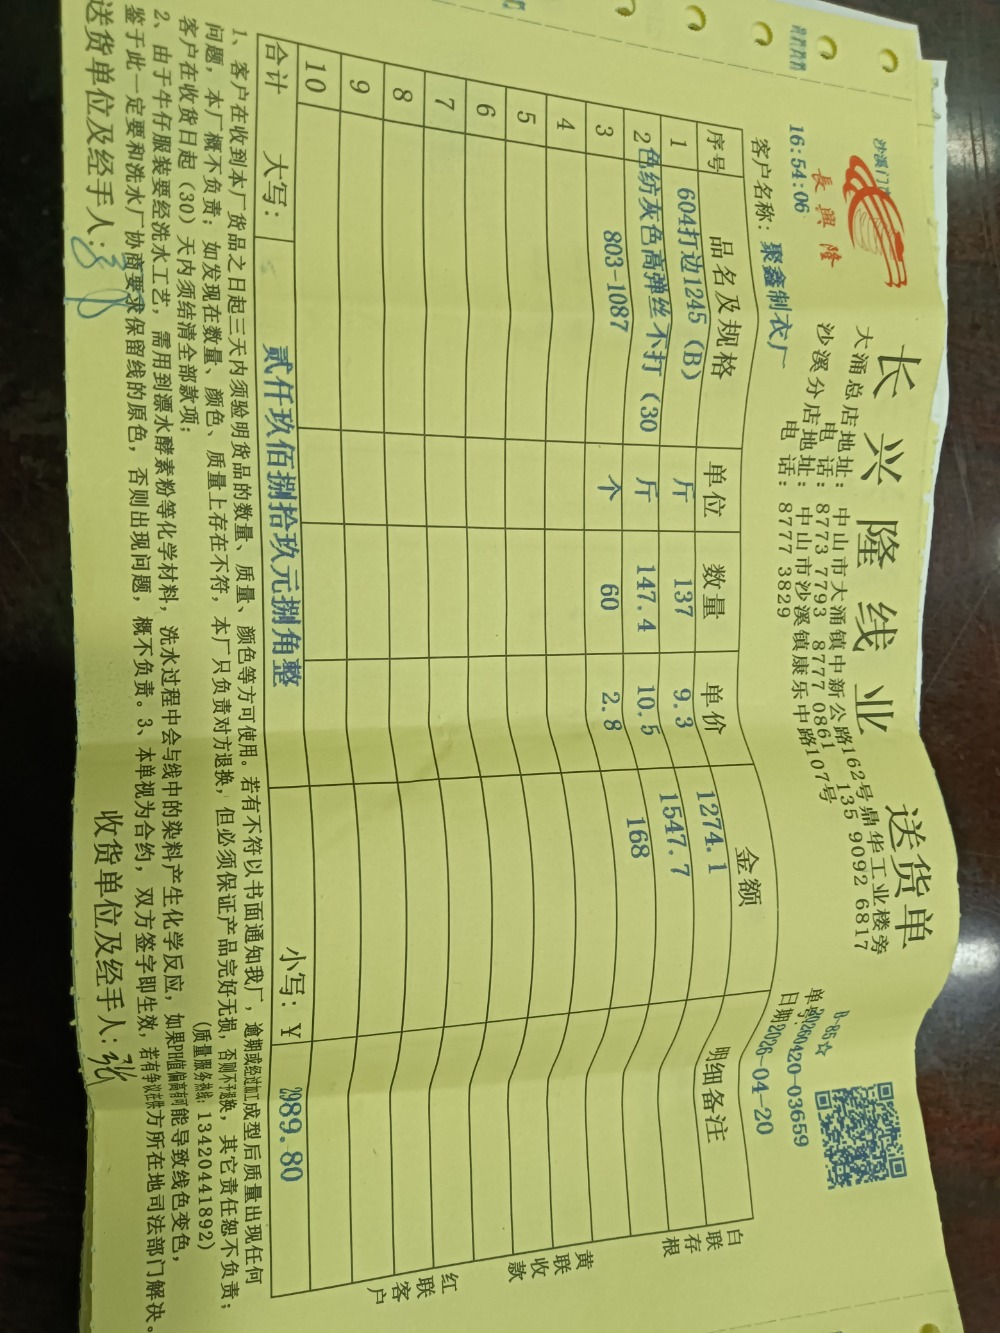 沙溪门市
長興隆
长兴隆线业 送货单
大涌总店地址：中山市大涌镇中新公路162号鼎华工业楼旁
电话：8773 7793 8777 0861 135 9092 6817
沙溪分店地址：中山市沙溪镇康乐中路107号
电话：8777 3829
B-85☆
单号:20260420-03659
16:54:06
日期2026-04-20
客户名称：聚鑫制衣厂
序号 品名及规格 单位 数量 单价 金额 明细备注
1 604打边1245（B） 斤 137 9.3 1274.1
2 色纺灰色高弹丝不打（30 斤 147.4 10.5 1547.7
3 803-1087 个 60 2.8 168
4
5
6
7
8
9
10
合计 大写： 贰仟玖佰捌拾玖元捌角整 小写：￥ 2989.80
白联存根
黄联收款
红联客户
1、客户在收到本厂货品之日起三天内须验明货品的数量、质量、颜色等方可使用。若有不符以书面通知我厂，逾期或经过加工成型后质量出现任何
问题，本厂概不负责；如发现在数量、颜色、质量上存在不符，本厂只负责对方退换，但必须保证产品完好无损，否则不予退换，其它责任恕不负责；
客户在收货日起（30）天内须结清全部款项；
(质量服务热线：13420441892)
2、由于牛仔服装要经洗水工艺，需用到漂水酵素粉等化学材料，洗水过程中会与线中的染料产生化学反应，如果PH值偏高有可能导致线色变色，
鉴于此一定要和洗水厂协商要求保留线的原色，否则出现问题，概不负责。3、本单视为合约，双方签字即生效，若有争议在供方所在地司法部门解决。
送货单位及经手人： 收货单位及经手人：张